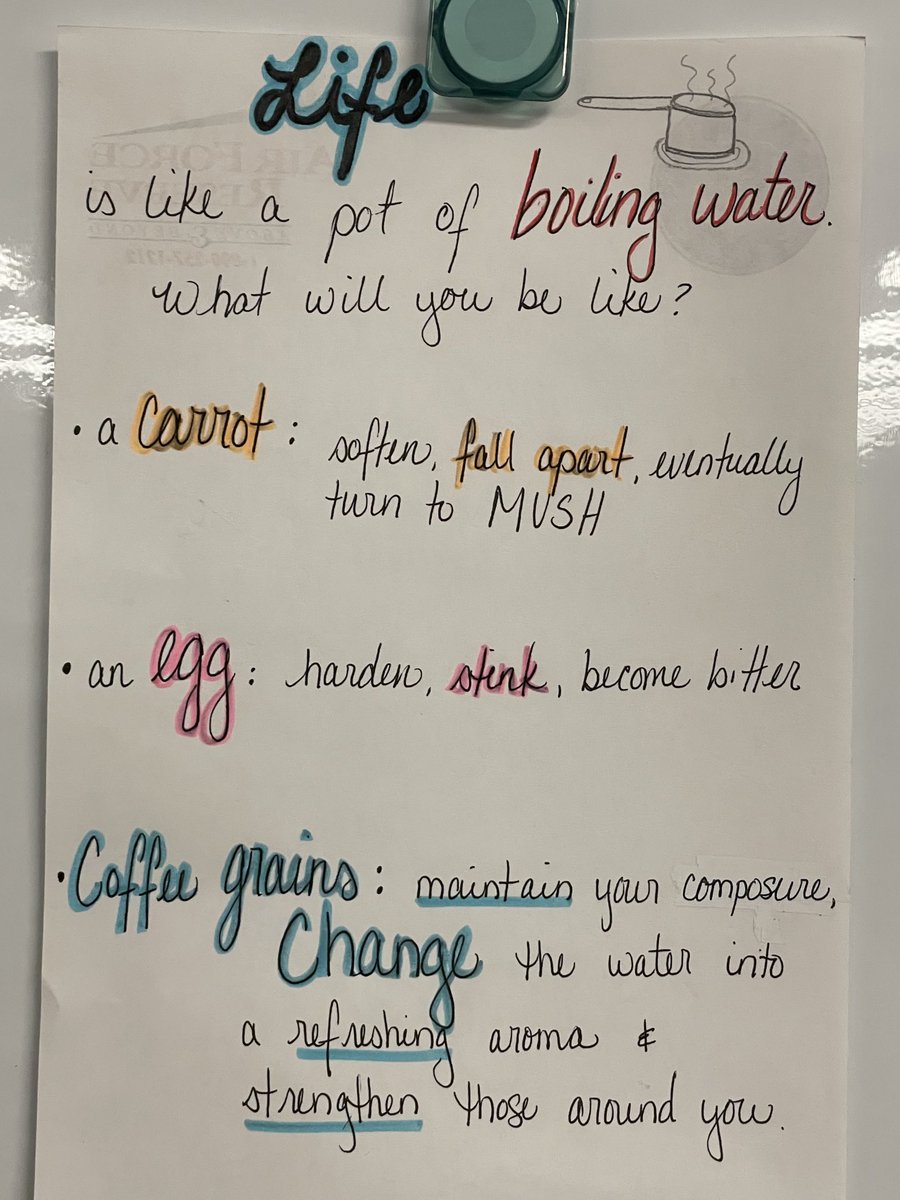 Life
is like a pot of boiling water.
What will you be like?
• a carrot: soften, fall apart, eventually
turn to MUSH
• an egg: harden, stink, become bitter
• Coffee grains: maintain your composure,
Change the water into
a refreshing aroma &
strengthen those around you.
AIR FORCE
RESERVE